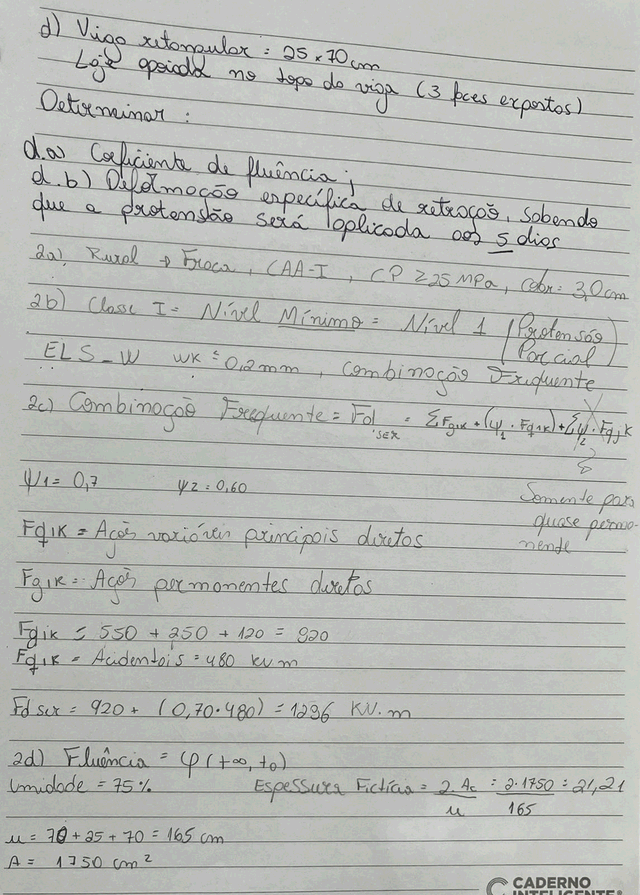 d) Viga retangular = 25 x 70 cm
Laje apoiada no topo da viga (3 faces expostas)
Determinar :
d.a) Coeficiente de fluência ;
d.b) Deformação específica de retração, sabendo
que a protensão será aplicada aos 5 dias
2a) Rural → Fraca, CAA-I, CP ≥ 25 MPa, cobr = 3,0cm
2b) Classe I = Nível Mínimo = Nível 1 (Protensão Parcial)
ELS-W wk ≤ 0,2mm, combinação Frequente
2c) Combinação Frequente = Fd ser = ΣFgik + (ψ1 . Fq1k) + Σψ2 . Fqjk
ψ1 = 0,7 ψ2 = 0,60
Somente para
quase perma-
nende
Fq1k = Ações variáveis principais diretas
Fgik = Ações permanentes diretas
Fgik = 550 + 250 + 120 = 920
Fq1k = Acidentais = 480 kv m
Fd ser = 920 + (0,70 . 480) = 1296 KN.m
2d) Fluência = φ(t∞, t0)
Umidade = 75% Espessura Fictícia = 2.Ac/u = 2.1750/165 = 21,21
u = 70 + 25 + 70 = 165 cm
A = 1750 cm²
CADERNO
INTELIGENTE®